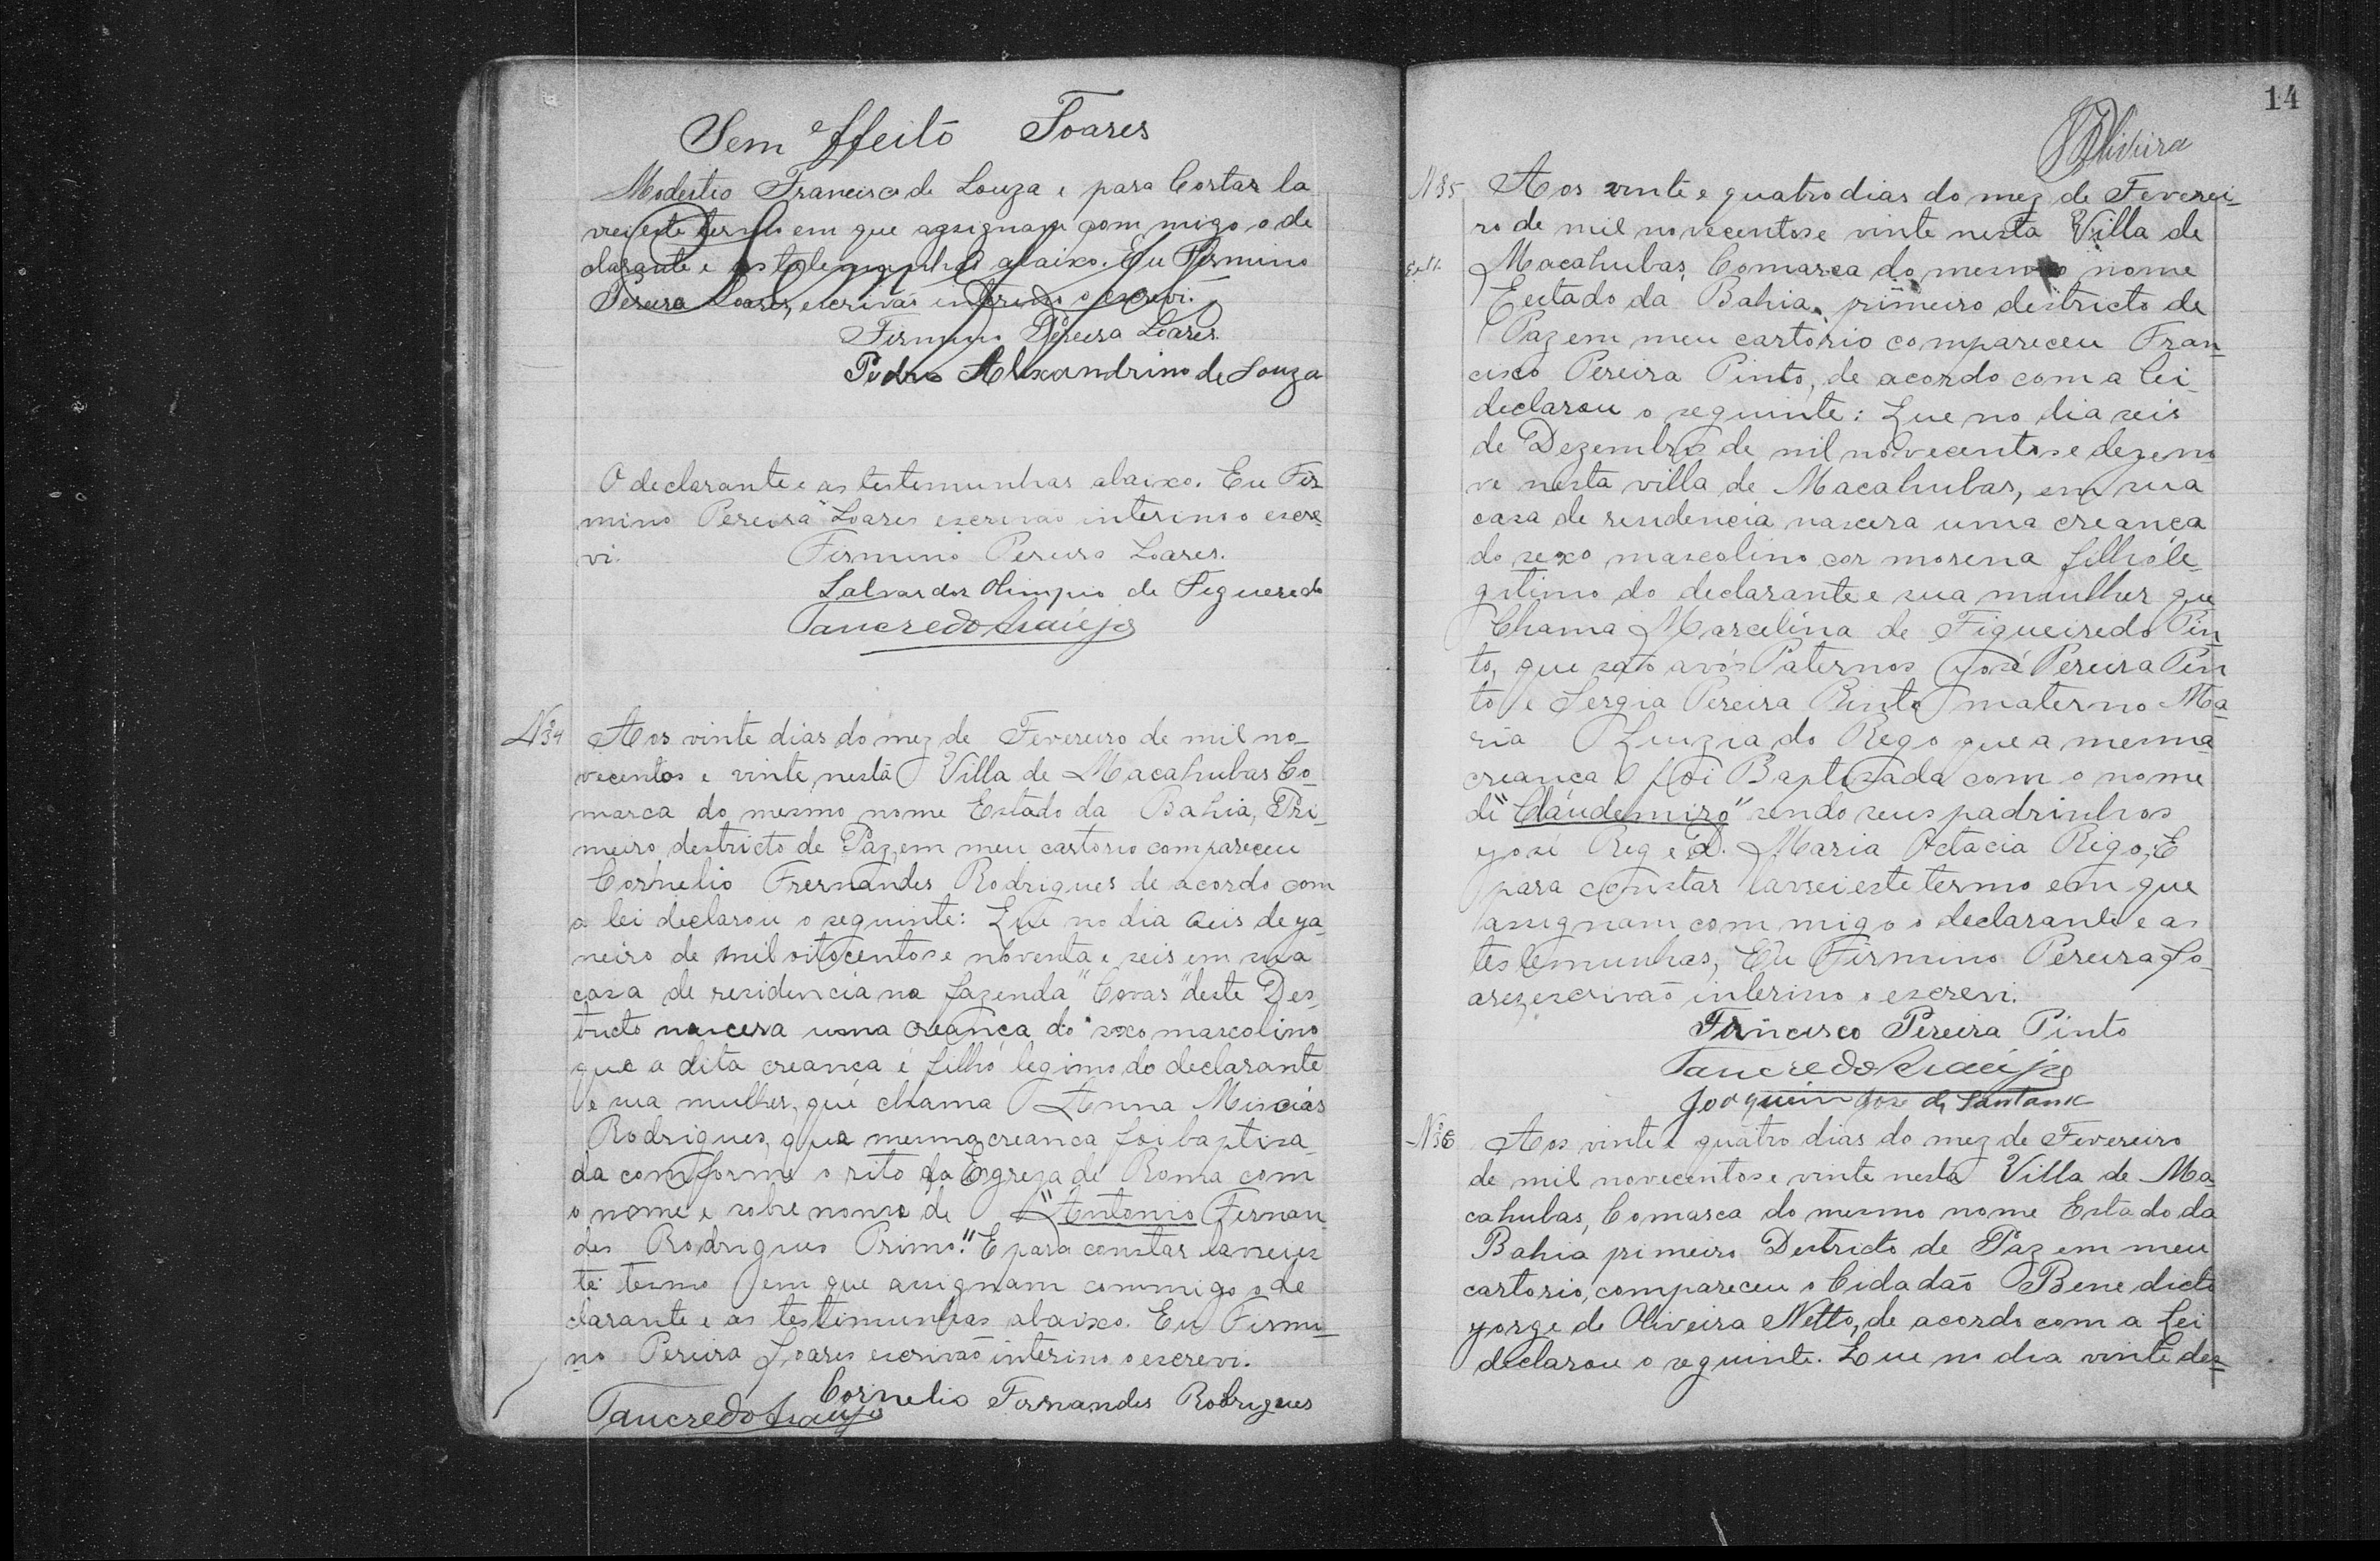 Sem effeito Soares
Modestio Francisco de Souza e para Costar la
vrei este termo em que assignam com migo o de
clarante e as testemunhas abaixo. Eu Firmino
Pereira Soares, escrivão interino o escrevi.
Firmino Pereira Soares.
Pedro Alexandrino de Souza
O declarante e as testemunhas abaixo. Eu Fir
mino Pereira Soares escrivão interino o escre-
vi. Firmino Pereira Soares.
Salvardor Olimpio de Figueredo
Tancredo Araujo
N34 Aos vinte dias do mez de Fevereiro de mil no-
vecentos e vinte, nesta Villa de Macahubas Co-
marca do mesmo nome Estado da Bahia, Pri-
meiro destricto de Paz, em meu cartorio compareceu
Cornelio Frernandes Rodrigues de acordo com
a lei declarou o seguinte: Que no dia seis de ja
neiro de mil oitocentos e noventa e seis em sua
casa de residencia na fazenda "Covas" deste Des
tricto nascera uma creança do sexo mascolino
que a dita creança é filho legimo do declarante
e sua mulher, que chama Anna Micias
Rodrigues, que a mesma creanca foi baptisa-
da comforme o rito da Egreja de Roma com
o nome e sobre nome de "Antonio Fernan
des Rodrigues Primo." E para constar lavrei es
te termo em que assignam commigo o de
clarante e as testimunhas abaixo. Eu Firmi-
no Pereira Soares escrivão interino o escrevi.
Cornelio Fernandes Rodrigues
Tancredo Araujo
14
Oliveira
N35 Aos vinte e quatro dias do mez de Feverei-
ro de mil novecentos e vinte nesta Villa de
Macahubas, Comarca do mesmo nome
Estado da Bahia, primeiro destricto de
Paz em meu cartorio compareceu Fran-
cisco Pereira Pinto, de acordo com a lei
declarou o seguinte: Que no dia seis
de Dezembro de mil novecentos e dezeno
ve nesta villa de Macahubas, em sua
casa de rendencia nascera uma creança
do sexo mascolino cor morena filho le-
gitimo do declarante e sua mulher que
Chama Marcelina de Figueiredo Pin
to, que são avós Paternos José Pereira Pin
to e Sergia Pereira Pinto materno Ma-
ria Luzia do Rego que a mesma
creança foi Baptisada com o nome
de "Claudemiro" sendo seus padrinhos
José Reg e D. Maria Octacia Rigo, E
para constar lavrei este termo em que
assignam com migo o declarante e as
testemunhas, Eu Firmino Pereira So-
ares, escrivão interino o escrevi.
Francisco Pereira Pinto
Tancredo Araujo
Joaquim Jose de Santana
N36 Aos vinte e quatro dias do mez de Fevereiro
de mil novecentos e vinte nesta Villa de Ma-
cahubas, Comarca do mesmo nome Estado da
Bahia primeiro Destricto de Paz em meu
cartorio, compareceu o Cidadão Benedicto
Jorge de Oliveira Netto, de acordo com a Lei
declarou o seguinte. Que no dia vinte des-